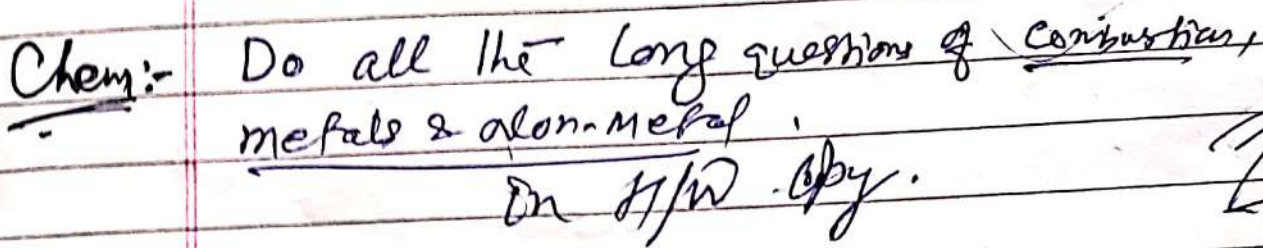 Chem:- Do all the long questions of combustion,
metals & non-metal.
In H/W copy.